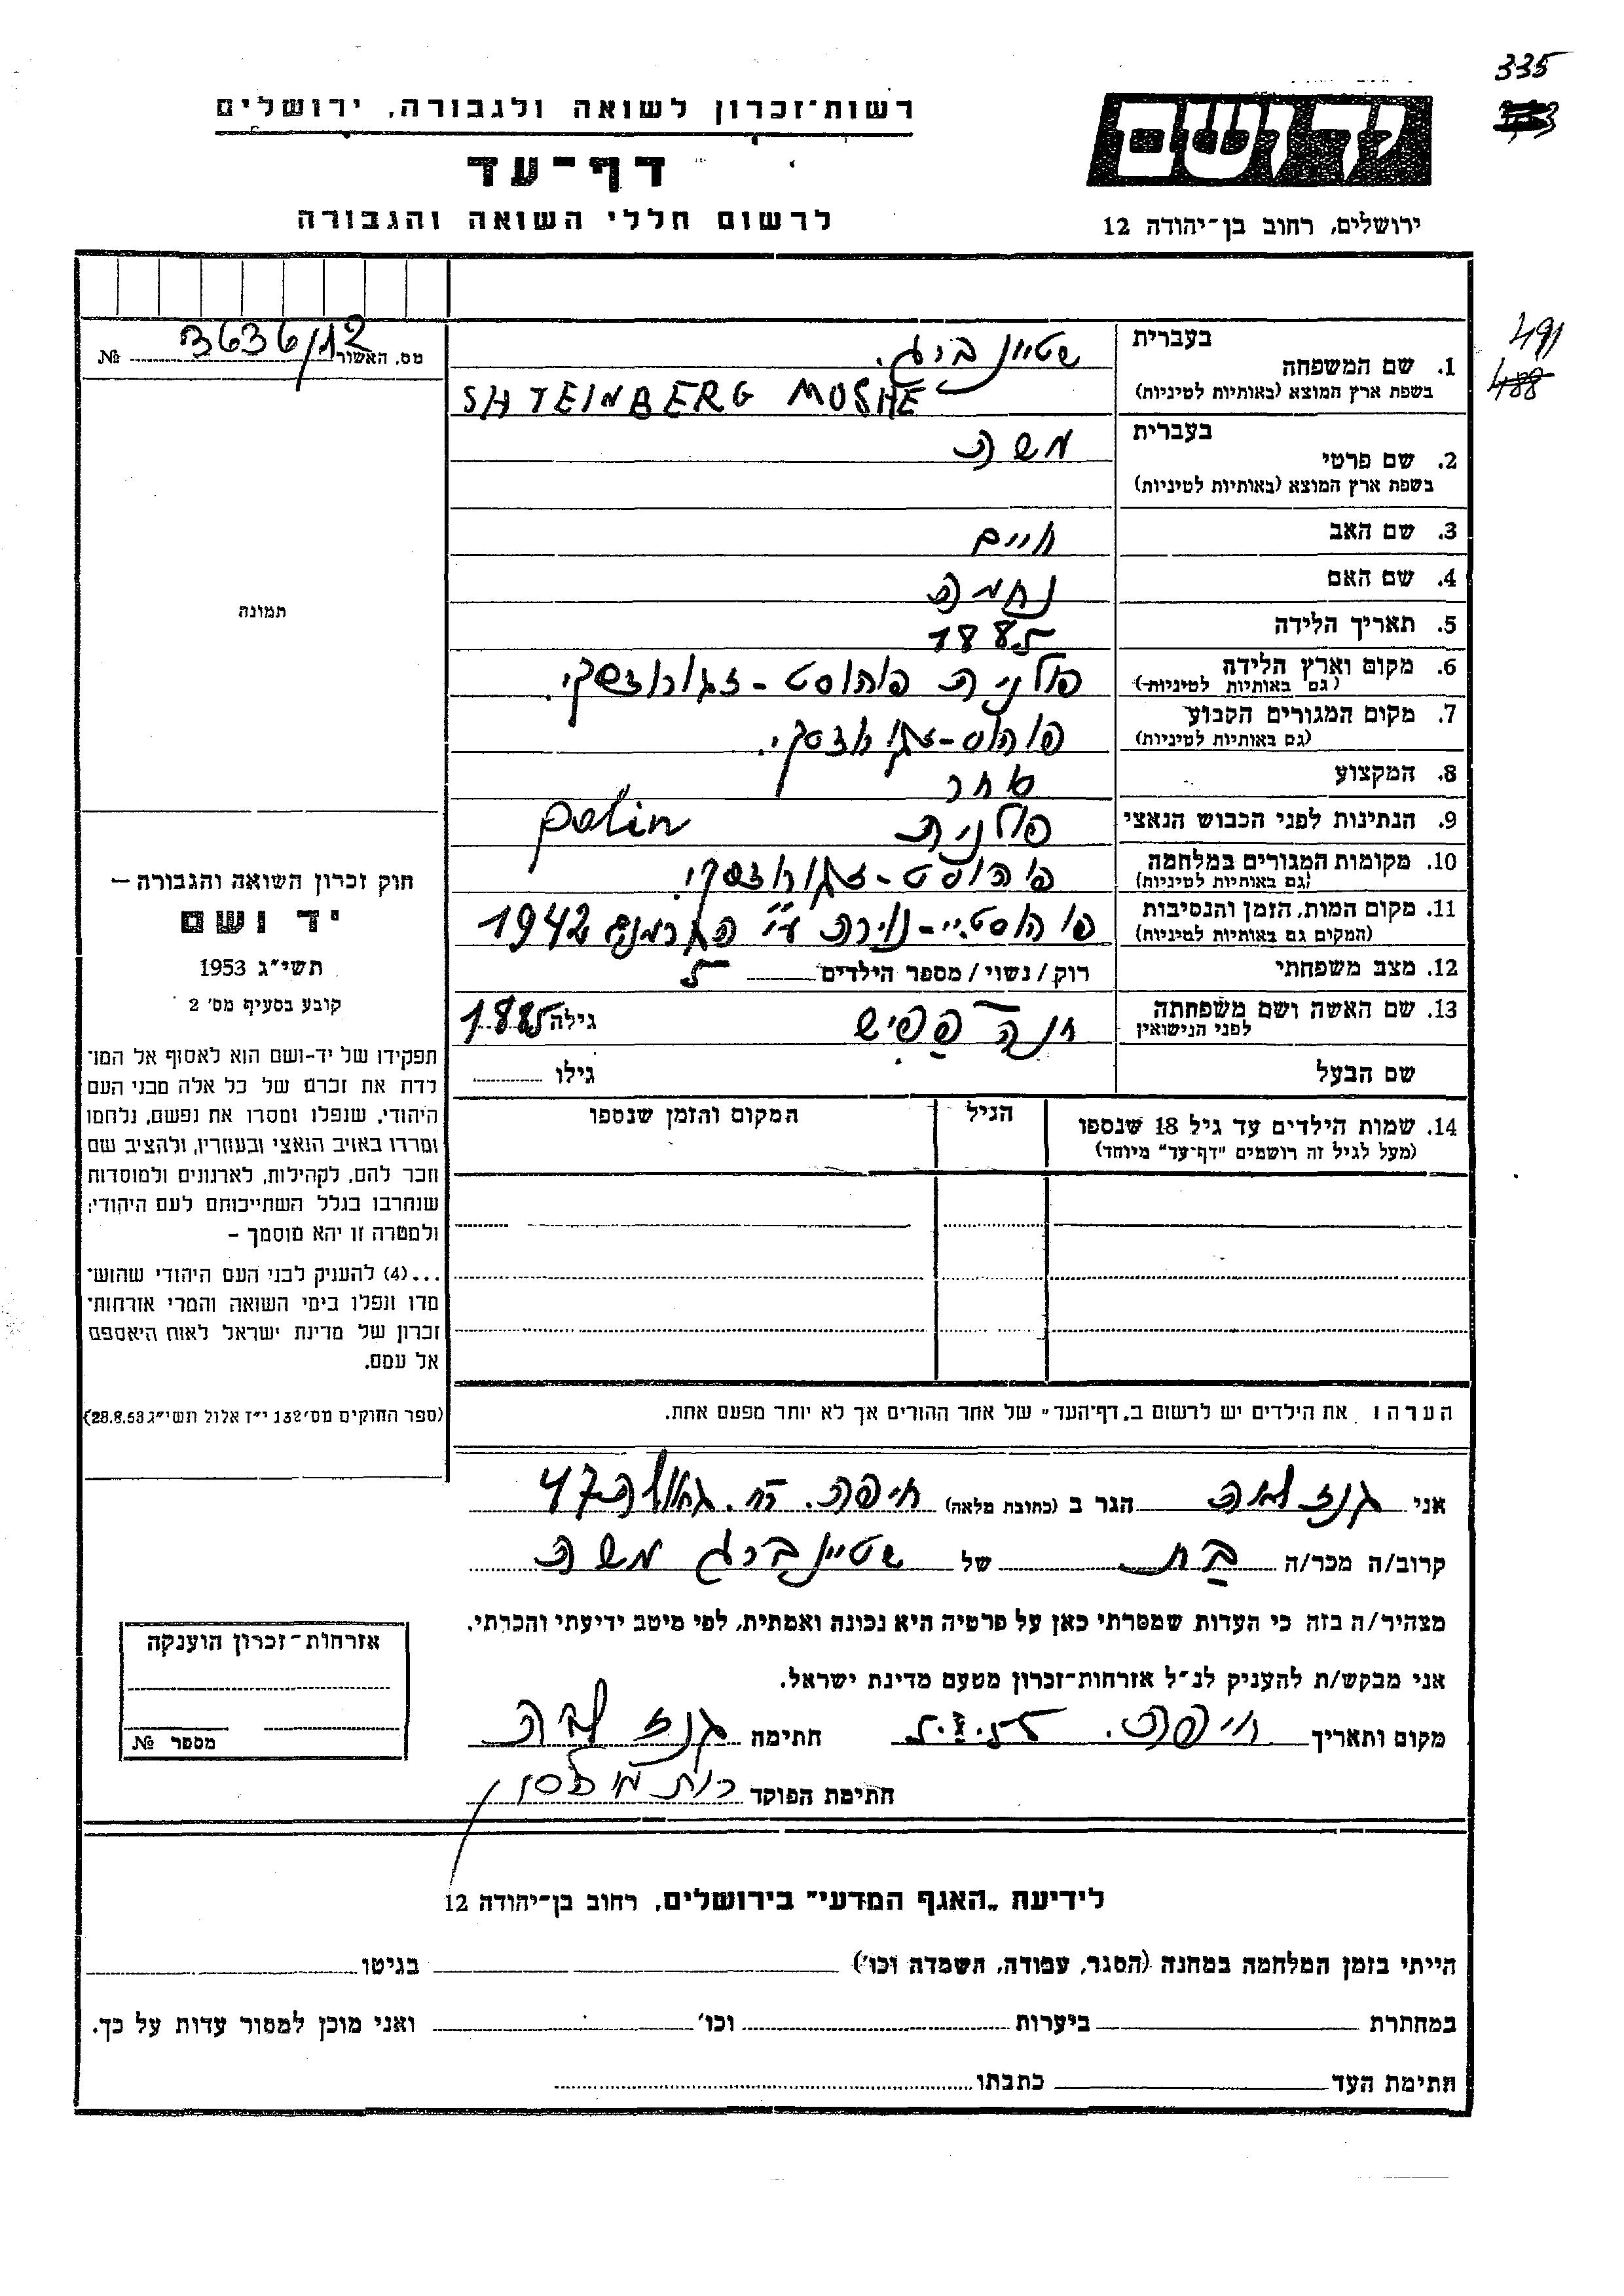 335
רשות־זכרון לשואה ולגבורה, ירושלים
דף־עד
לרשום חללי השואה והגבורה
יד ושם
ירושלים, רחוב בן־יהודה 12
491
488
מס. האשור 3636/12 №
1. שם המשפחה
בעברית שטיינברג.
בשפת ארץ המוצא (באותיות לטיניות) SHTEINBERG MOSHE
2. שם פרטי
בעברית משה
בשפת ארץ המוצא (באותיות לטיניות)
3. שם האב חיים
4. שם האם נחמה
5. תאריך הלידה 1885
6. מקום וארץ הלידה פולניה פוהוסט-זגורודסקי.
(גם באותיות לטיניות)
7. מקום המגורים הקבוע פוהוס-זגורודסקי.
(גם באותיות לטיניות)
8. המקצוע סחר
9. הנתינות לפני הכבוש הנאצי פולנית polin
10. מקומות המגורים במלחמה פוהוסט-זגורודסקי.
(גם באותיות לטיניות)
11. מקום המות, הזמן והנסיבות פוהוסט-נוירה ע"י הגרמנים 1942
(המקום גם באותיות לטיניות)
12. מצב משפחתי רוק / נשוי / מספר הילדים 5
13. שם האשה ושם משפחתה חנה גילה 1885
לפני הנישואין
שם הבעל גילו
14. שמות הילדים עד גיל 18 שנספו הגיל המקום והזמן שנספו
(מעל לגיל זה רושמים "דף־עד" מיוחד)
הערה: את הילדים יש לרשום ב"דף־העד" של אחד ההורים אך לא יותר מפעם אחת.
תמונה
חוק זכרון השואה והגבורה –
יד ושם
תשי"ג 1953
קובע בסעיף מס' 2
תפקידו של יד-ושם הוא לאסוף אל המו־
לדת את זכרם של כל אלה מבני העם
היהודי, שנפלו ומסרו את נפשם, נלחמו
ומרדו באויב הנאצי ובעוזריו, ולהציב שם
וזכר להם, לקהילות, לארגונים ולמוסדות
שנחרבו בגלל השתייכותם לעם היהודי;
ולמטרה זו יהא מוסמך –
...(4) להעניק לבני העם היהודי שהוש־
מדו ונפלו בימי השואה והמרי אזרחות־
זכרון של מדינת ישראל לאות היאספם
אל עמם.
(ספר החוקים מס' 132 י"ז אלול תשי"ג 28.8.53)
אני גנז לאה הגר ב (כתובת מלאה) חיפה. רח. גאולה 47
קרוב/ה מכר/ה בת של שטיינברג משה
מצהיר/ה בזה כי העדות שמסרתי כאן על פרטיה היא נכונה ואמתית, לפי מיטב ידיעתי והכרתי.
אני מבקש/ת להעניק לנ"ל אזרחות־זכרון מטעם מדינת ישראל.
מקום ותאריך חיפה. חתימה גנז לאה
חתימת הפוקד רות
אזרחות־זכרון הוענקה
מספר №
לידיעת "האגף המדעי" בירושלים, רחוב בן־יהודה 12
הייתי בזמן המלחמה במחנה (הסגר, עבודה, השמדה וכו') בגיטו
במחתרת ביערות וכו' ואני מוכן למסור עדות על כך.
חתימת העד כתבתו